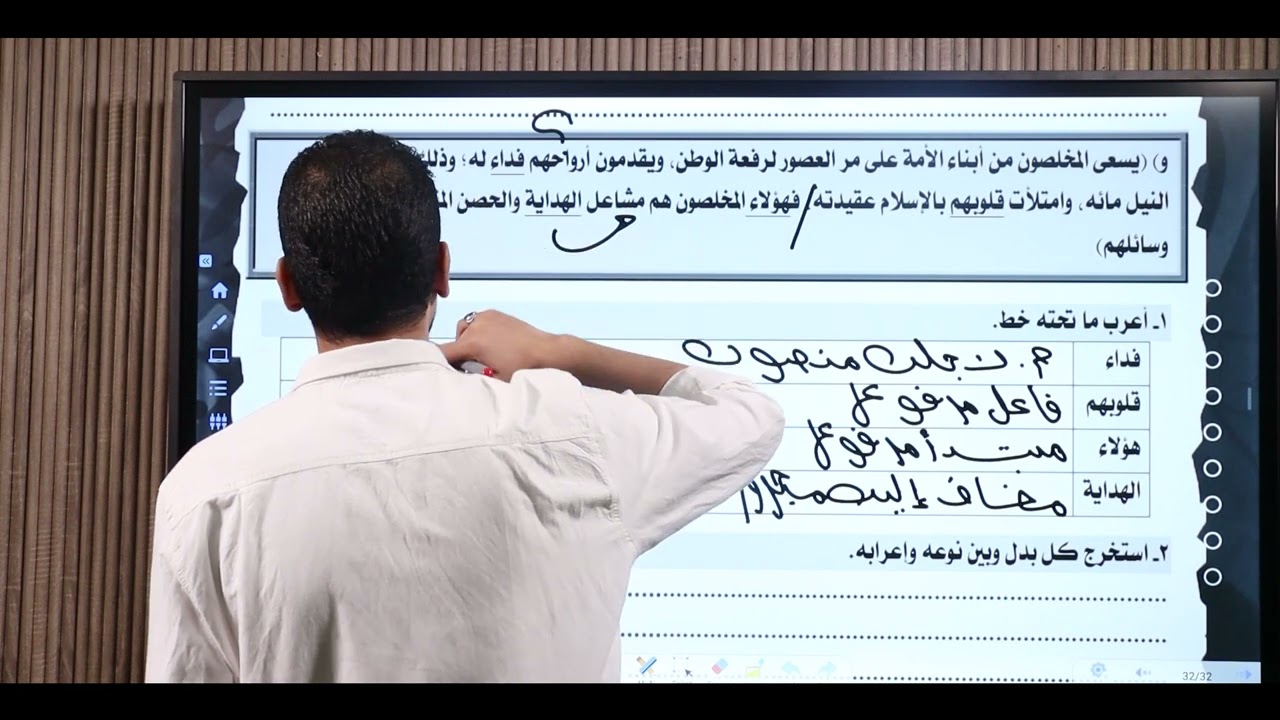 و) (يسعى المخلصون من أبناء الأمة على مر العصور لرفعة الوطن، ويقدمون أرواحهم فداء له؛ وذلك
النيل مائه، وامتلأت قلوبهم بالإسلام عقيدته/ فهؤلاء المخلصون هم مشاعل الهداية والحصن
وسائلهم)
١ـ أعرب ما تحته خط.
فداء م. لأجله منصوب
قلوبهم فاعل مرفوع
هؤلاء مبتدأ مرفوع
الهداية مضاف إليه مجرور
٢ـ استخرج كل بدل وبين نوعه وإعرابه.
32/32